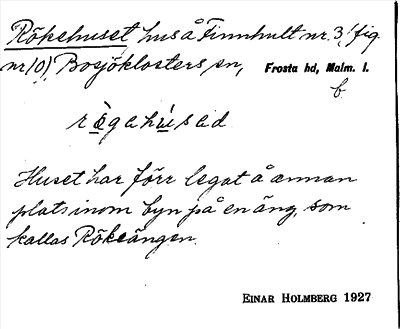 Rökehuset, hus å Finnhult nr. 3, (fig.
nr 10), Bosjöklosters sn, Frosta hd, Malm. l.
b.
rö̀gahúsəd
Huset har förr legat å annan
plats inom byn på en äng, som
kallas Rökeängen.
EINAR HOLMBERG 1927